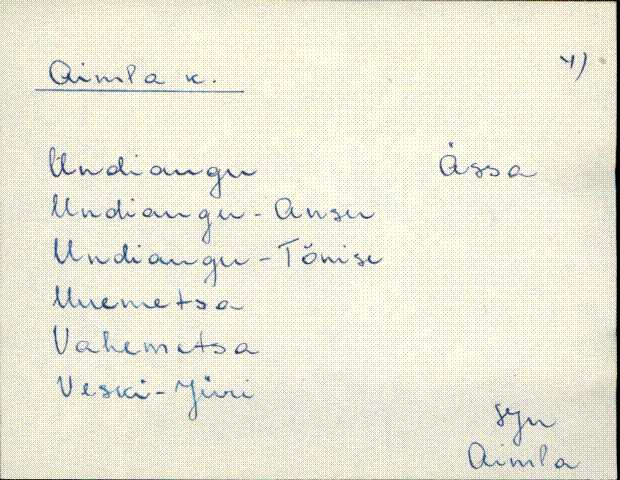 Aimla k.
4)
Undiangu
Ässa
Undiangu-Ansu
Undiangu-Tõnise
Uuemetsa
Vahemetsa
Veski-Jüri
Syn
Aimla